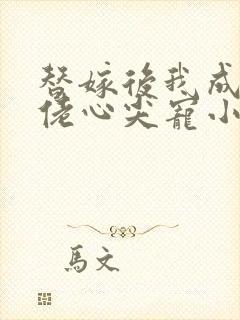 替嫁後我成
佬心尖寵小
馬文